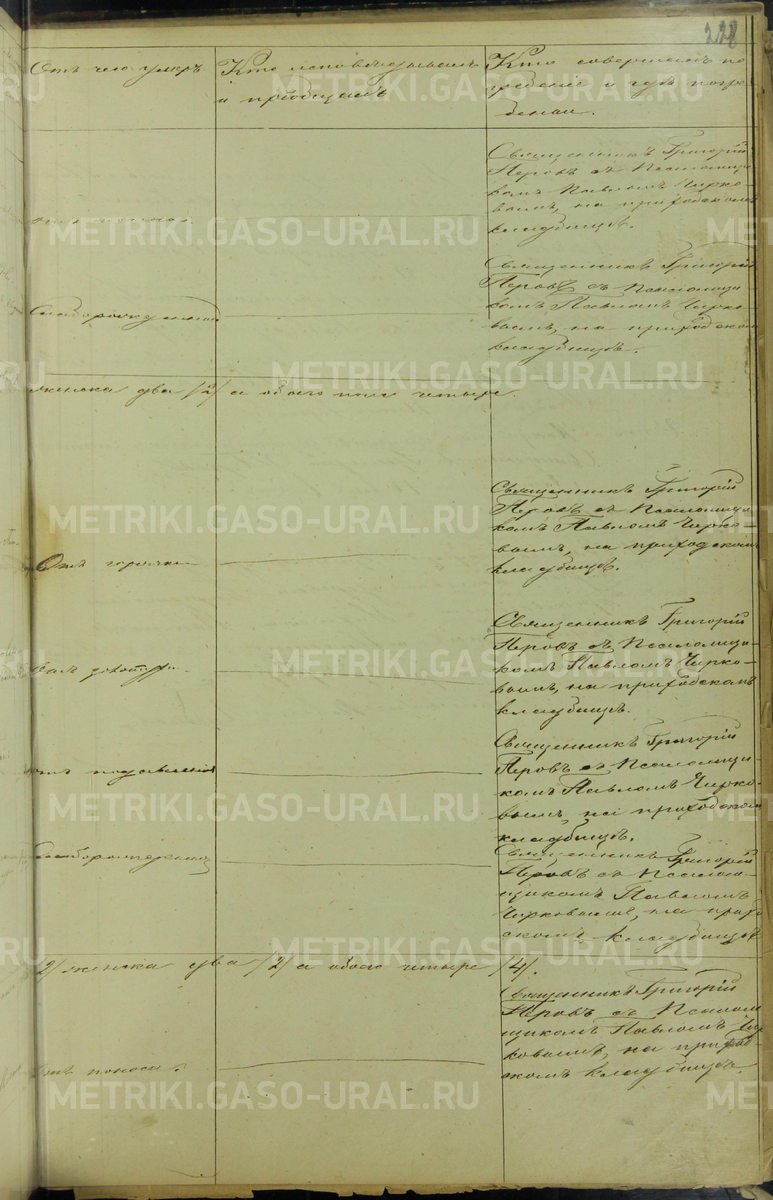 228
Отъ чего умеръ
Кто исповѣдывалъ
и пріобщалъ
Кто совершалъ по
гребеніе и гдѣ погре
бены.
Священникъ Григорій
Перовъ съ Псаломщи
комъ Павломъ Чирко-
вымъ, на приходскомъ
кладбищѣ.
отъ поноса.
Священникъ Григорій
Перовъ съ Псаломщи-
комъ Павломъ Чирко-
вымъ, на приходском
кладбищѣ.
Слаборожденный
женска два /2/ а обоего пола четыре.
Священникъ Григорій
Перовъ съ Псаломщи
комъ Павломъ Чирко-
вымъ, на приходскомъ
кладбищѣ.
Отъ горячки
Священникъ Григорій
Перовъ съ Псаломщи-
комъ Павломъ Чирко-
вымъ, на приходскомъ
кладбищѣ.
Священникъ Григорій
Перовъ съ Псаломщи
комъ Павломъ Чирко-
вымъ, на приходском
кладбищѣ.
отъ
Священникъ Григорій
Перовъ съ Псалом-
щикомъ Павломъ
Чирковымъ, на прихо
скомъ кладбищѣ
2/ женска два /2/ а обоего четыре /4/.
Священникъ Григорій
Перовъ съ Псалом
щикомъ Павломъ Чир
ковымъ, на приход-
скомъ кладбищѣ.
отъ поноса.
METRIKI.GASO-URAL.RU